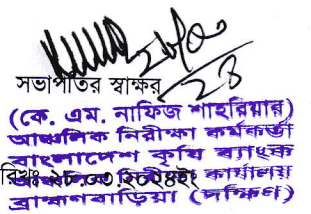 সভাপতির স্বাক্ষর
(কে. এম. নাফিজ শাহরিয়ার)
আঞ্চলিক নিরীক্ষা কর্মকর্তা
বাংলাদেশ কৃষি ব্যাংক
নিরীক্ষা কার্যালয়
ব্রাহ্মণবাড়িয়া (দক্ষিণ)